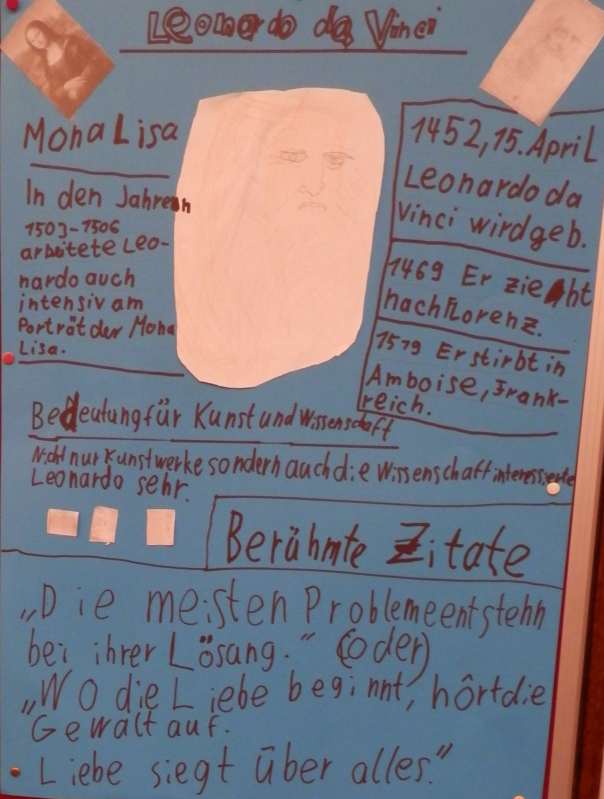 Leonardo da Vinci
Mona Lisa
In den Jahren
1503-1506
arbeitete Leo-
nardo auch
intensiv am
Porträt der Mona
Lisa.
1452, 15. April
Leonardo da
Vinci wird geb.
1469 Er zieht
nach Florenz.
1519 Er stirbt in
Amboise, Frank-
reich.
Bedeutung für Kunst und Wissenschaft
Nicht nur Kunstwerke sondern auch die Wissenschaft interessierte
Leonardo sehr.
Berühmte Zitate
„Die meisten Probleme entstehn
bei ihrer Lösang." (oder)
„Wo die Liebe beginnt, hört die
Gewalt auf.
Liebe siegt über alles."